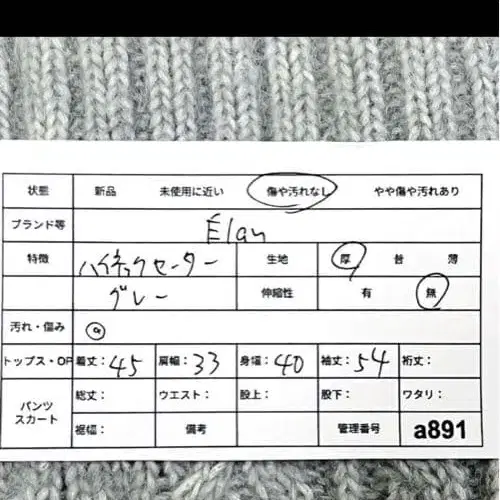 状態 新品 未使用に近い 傷や汚れなし やや傷や汚れあり
ブランド等 Élan
特徴 ハイネックセーター 生地 厚 普 薄
グレー 伸縮性 有 無
汚れ・傷み ◎
トップス・OP 着丈：45 肩幅：33 身幅：40 袖丈：54 裄丈：
パンツ スカート 総丈： ウエスト： 股上： 股下： ワタリ：
裾幅： 備考 管理番号 a891